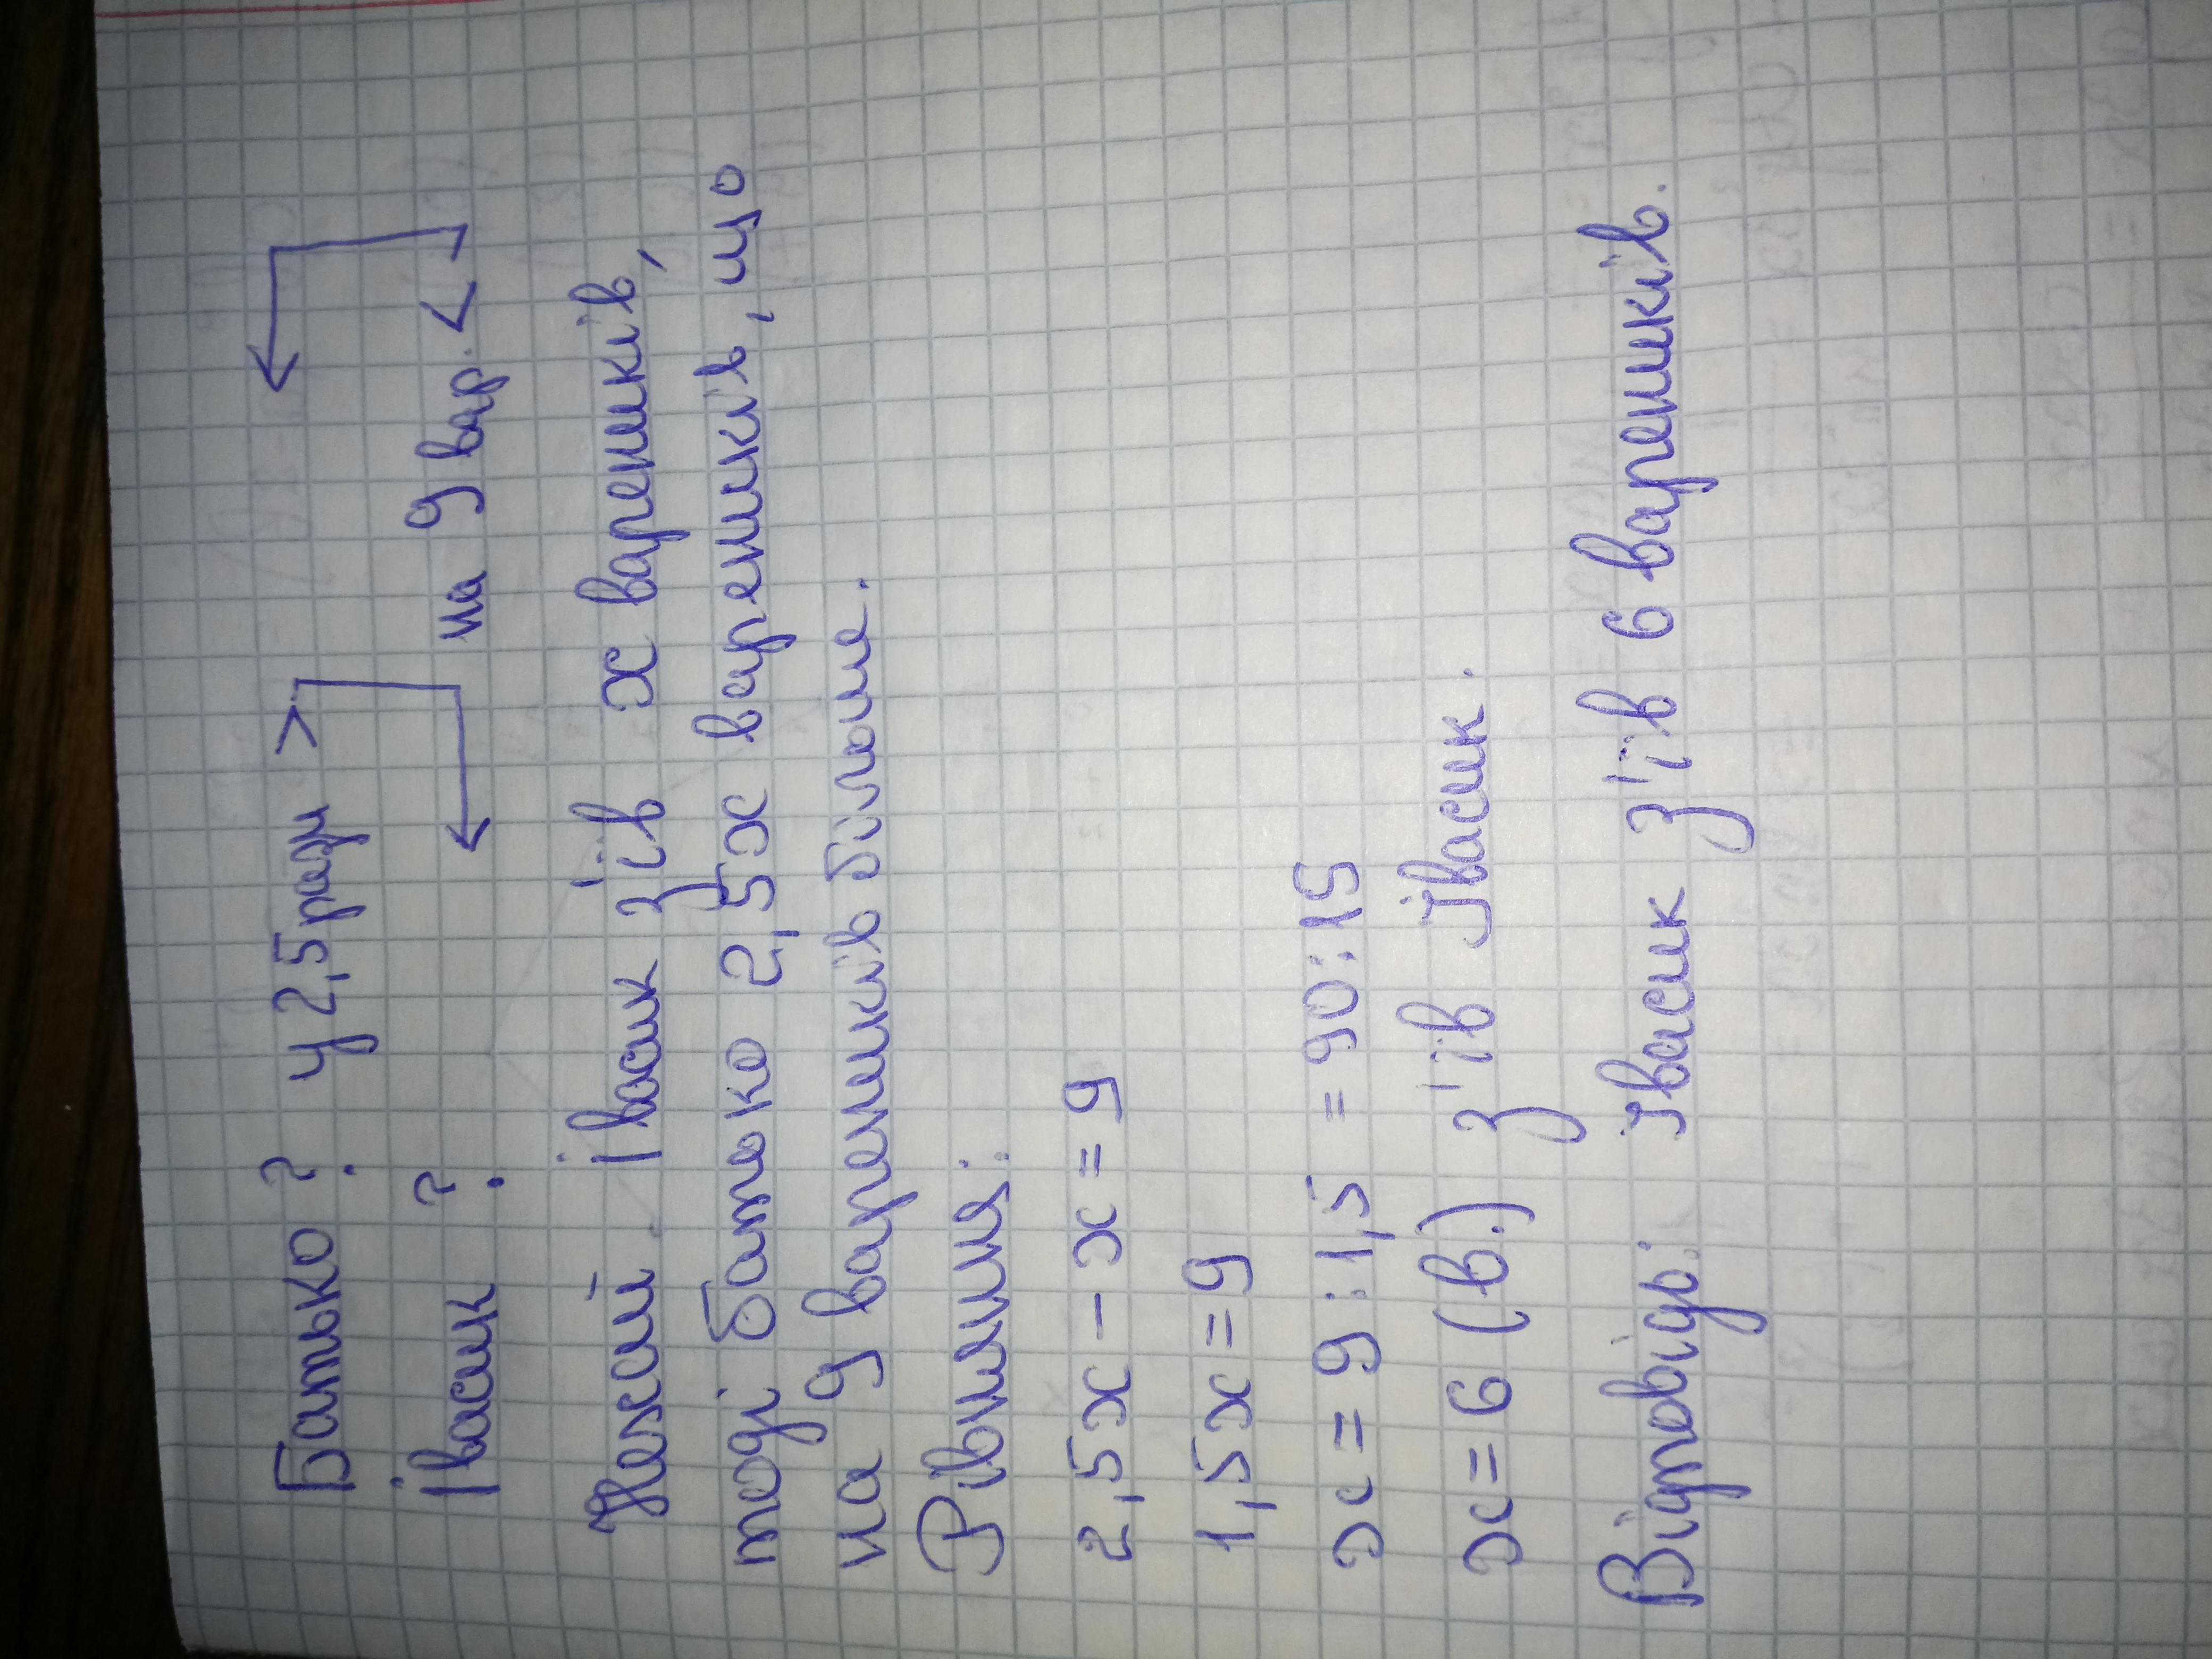 Батько ? у 2,5 рази >
Івасик ? на 9 вар. <
Нехай Івасик з'їв х вареників,
тоді батько 2,5х вареників, що
на 9 вареників більше.
Рівняння:
2,5х - х = 9
1,5х = 9
х = 9 : 1,5 = 90 : 15
х = 6 (в.) з'їв Івасик.
Відповідь: Івасик з'їв 6 вареників.